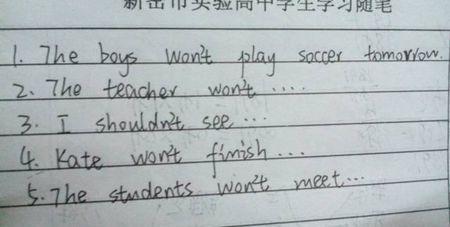 新密市实验高中学生学习随笔
1. The boys won't play soccer tomorrow.
2. The teacher won't ....
3. I shouldn't see ...
4. Kate won't finish ...
5. The students won't meet...